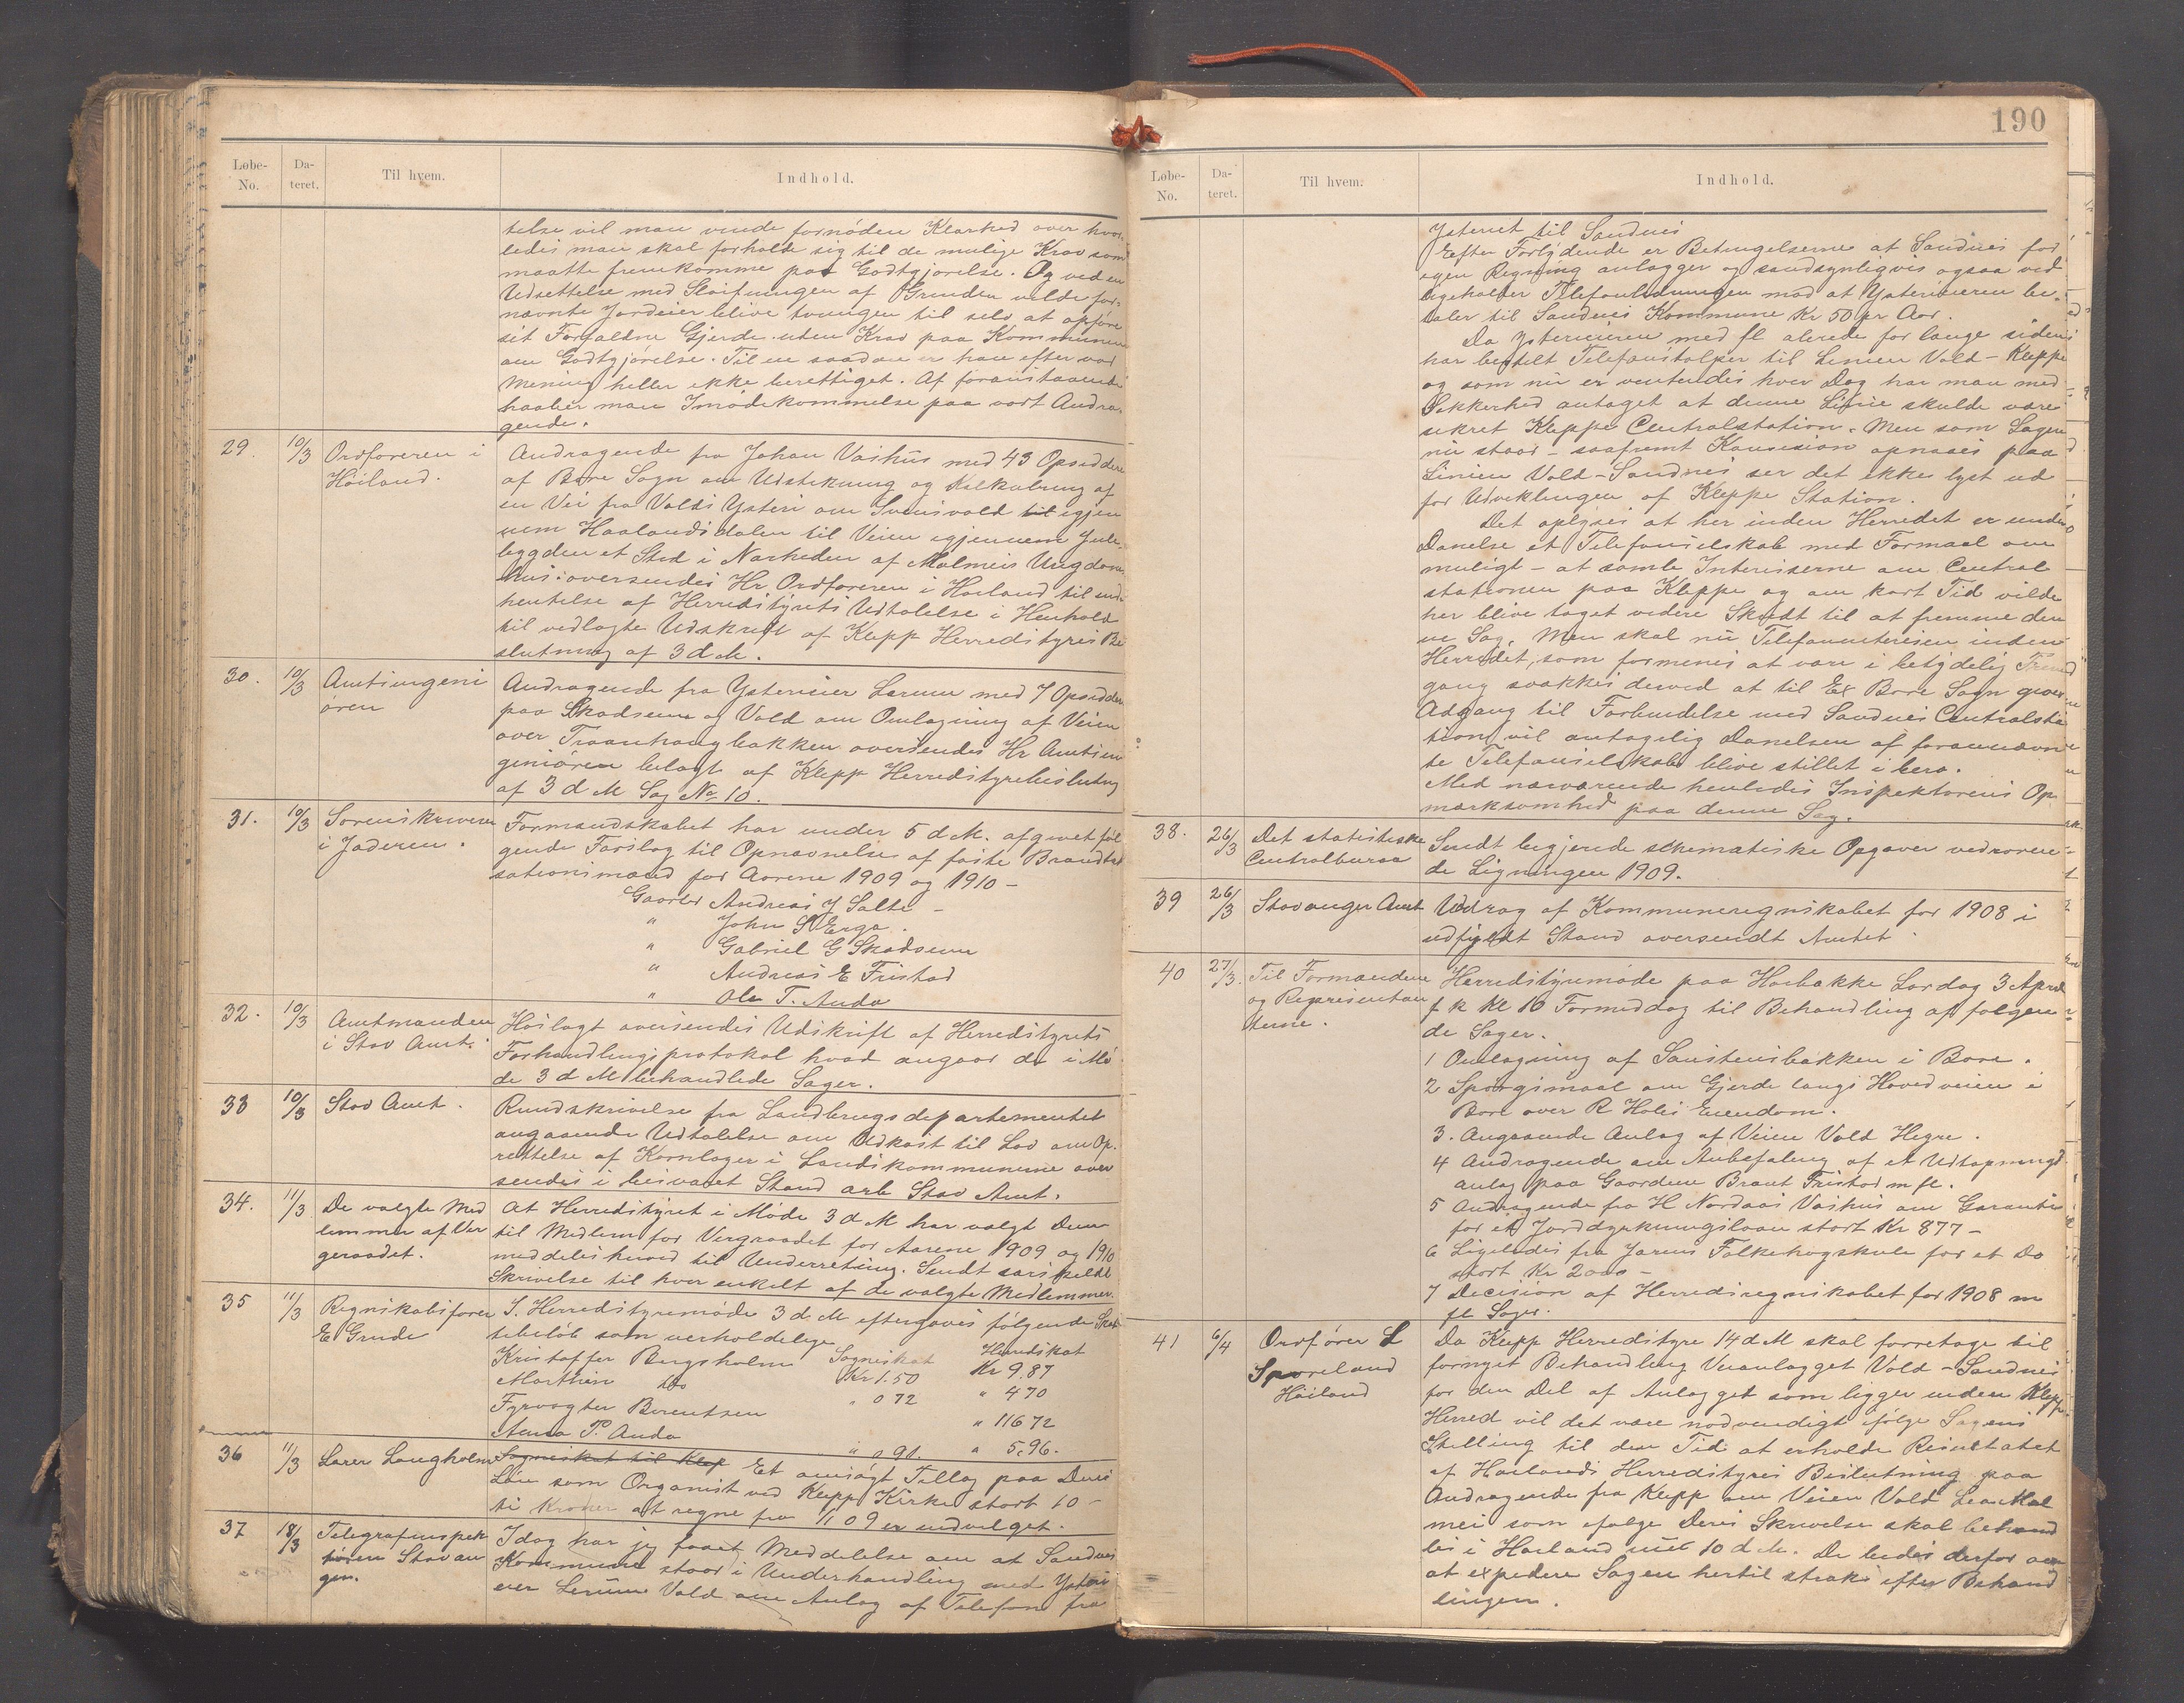 Løbe-
No.
Da-
teret.
Til hvem.
Indhold.
telse vil man vinde fornøden Klarhed over hvor-
ledes man skal forholde sig til de mulige Krav som
maatte fremkomme paa Godtgjørelse. Og ved en
Udsettelse med Sløifningen af Grinden vilde for-
nævnte Jordeier blive tvungen til selv at opføre
sit Forfaldne Gjerde uten Krav paa Kommunen
om Godtgjørelse. Til en saadan er han efter vor
Mening heller ikke berettiget. Af foranstaaende
haaber man Imødekommelse paa vort Andra-
gende.
29. 10/3 Ordføreren i
Höiland.
Andragende fra Johan Vashus med 43 Opsiddere
af Bore Sogn om Udstikning og Kalkulering af
en Vei fra Volds Ysteri om Svinsvold til igjen
nem Haalandsdalen til Veien igjennem Jule-
bygden et Sted i Nærheden af Malmeis Ungdoms
hus: oversendes Hr. Ordføreren i Høiland til ind-
hentelse af Herredstyrets Udtalelse i Henhold
til vedlagte Udskrift af Klepp Herredstyres Be
slutning af 3 d M.
30. 10/3 Amtsingeni
ören
Andragende fra Ysterieier Lerum med 7 Opsiddere
paa Skadsem og Vold om Omlægning af Veien
over Traanhaugbakken oversendes Hr. Amtsin
geniören belagt af Klepp Herredstyrebeslutning
af 3 d M Sag No 10.
31. 10/3 Sorenskriveren
i Jæderen.
Formandskabet har under 5 d M. afgivet føl
gende Forslag til Opnævnelse af faste Brandtak
sationsmænd for Aarene 1909 og 1910 –
Gaardbr Andreas J Salte –
" John S Erga.
" Gabriel G Skadsem
" Andreas E Tristad
" Ole T. Anda
32. 10/3 Amtmanden
i Stav Amt.
Hoslagt oversendes Udskrift af Herredstyrets
Forhandlingsprotokol hvad angaar de i Mö
de 3 d M behandlede Sager.
33 10/3 Stav Amt.
Rundskrivelse fra Landbrugsdepartementet
angaaende Udtalelse om Udkast til Lov om Op-
rettelse af Kornlager i Landskommunerne over
sendes i besvaret Stand arb Stav Amt.
34. 11/3 De valgte Med
lemmer af Ver
geraadet.
At Herredstyret i Møde 3 d M har valgt Dem
til Medlem for Vergeraadet for Aarene 1909 og 1910
meddeles herved til Underretning. Sendt særskildt
Skrivelse til hver enkelt af de valgte Medlemmer.
35 11/3 Regnskabsfører
E Grude
I. Herredstyremøde 3 d M eftergaves følgende Skat
tebeløb som uerholdelige
Sogneskat Herredskat
Kristoffer Bergsholm Kr 1.50 Kr 9.87
Marthin do " 0 72 " 4 70
Fyrvogter Berentsen " 116 72
Anna P. Anda " 0 90. " 5.96.
36 11/3 Lærer Langholm
Sogneskat til Klep Et ansögt Tillæg paa Deres
Lön som Organist ved Klepp Kirke stort 10 –
ti Kroner at regne fra 1/1 09 er indvilget.
37 18/3 Telegrafinspek
tören Stavan
ger.
Idag har jeg faaet Meddelelse om at Sandnes
Kommune staar i Underhandling med Ysteri
eier Lerum Vold om Anlæg af Telefon fra
190
Løbe-
No.
Da-
teret.
Til hvem.
Indhold.
Ysteriet til Sandnes
Efter Forlydende er Betingelserne at Sandnes for
egen Regning anlægger og sandsynligvis ogsaa ved
ligeholder Telefonledningen mod at Ysterieieren be-
taler til Sandnes Kommune Kr 50 pr Aar.
Da Ysterieieren med fl alerede for lange siden
har bestilt Telefonstolper til Linien Vold – Kleppe
og som nu er ventendes hver Dag har man med
Sikkerhed antaget at denne Linie skulde være
sikret Kleppe Centralstation. Men som Sagen
nu staar – saafremt Koncesion opnaaes paa
Linien Vold – Sandnes ser det ikke lyst ud
for Udviklingen af Kleppe Station.
Det oplyses at her inden Herredet er under
Danelse et Telefonselskab med Formaal om
muligt – at samle Interisserne om Central
stationen paa Kleppe og om kort Tid vilde
her blive taget videre Skridt til at fremme den
ne Sag. Men skal nu Telefoninteresen inden
Herredet, som formenes at være i betydelig Frem
gang svækkes derved at til Ex Bore Sogn gives
Adgang til Forbindelse med Sandnes Centralsta
tion, vil antagelig Danelsen af forannævn
te Telefonselskab blive stillet i bero.
Med nærværende henledes Inspektørens Op
mærksomhed paa denne Sag.
38. 26/3 Det statistiske
Centralburaa
Sendt begjerede schematiske Opgaver vedrøren
de Ligningen 1909.
39 26/3 Stavanger Amt
Uddrag af Kommuneregnskabet for 1908 i
udfyldt Stand oversendt Amtet.
40 27/3. Til Formændene
og Representan
terne.
Herredstyremøde paa Hoebakke Lørdag 3 April
f k Kl 10 Formiddag til Behandling af følgen
de Sager.
1 Omlægning af Sanstensbakken i Bore.
2 Spørgsmaal om Gjerde langs Hovedveien i
Bore over R Holes Eiendom.
3. Angaaende Anlæg af Veien Vold Hegre.
4 Andragende om Anbefaling af et Udtapnings
anlæg paa Gaardene Braut Tristad m fl.
5 Andragende fra H Nordaas Vashus om Garanti
for et Jorddyrkningslaan stort Kr 877 –
6 Ligeledes fra Jærens Folkehøgskole for et Do
stort Kr 2000 –
7 Decision af Herredsregnskabet for 1908 m
fl Sager.
41 6/4 Ordfører L
Spoeland
Höiland
Da Klepp Herredstyre 14 d M skal forretage til
fornyet Behandling Veianlægget Vold – Sandnes
for den Del af Anlægget som ligger inden Klepp
Herred vil det være nødvendigt ifølge Sagens
Stilling til den Tid at erholde Resultatet
af Høilands Herredstyres Beslutning paa
Andragende fra Klepp om Veien Vold Lea Mal
mei som ifølge Deres Skrivelse skal behand
les i Høiland 10 d M. De bedes derfor om
at expedere Sagen hertil straks efter Behand
lingen.